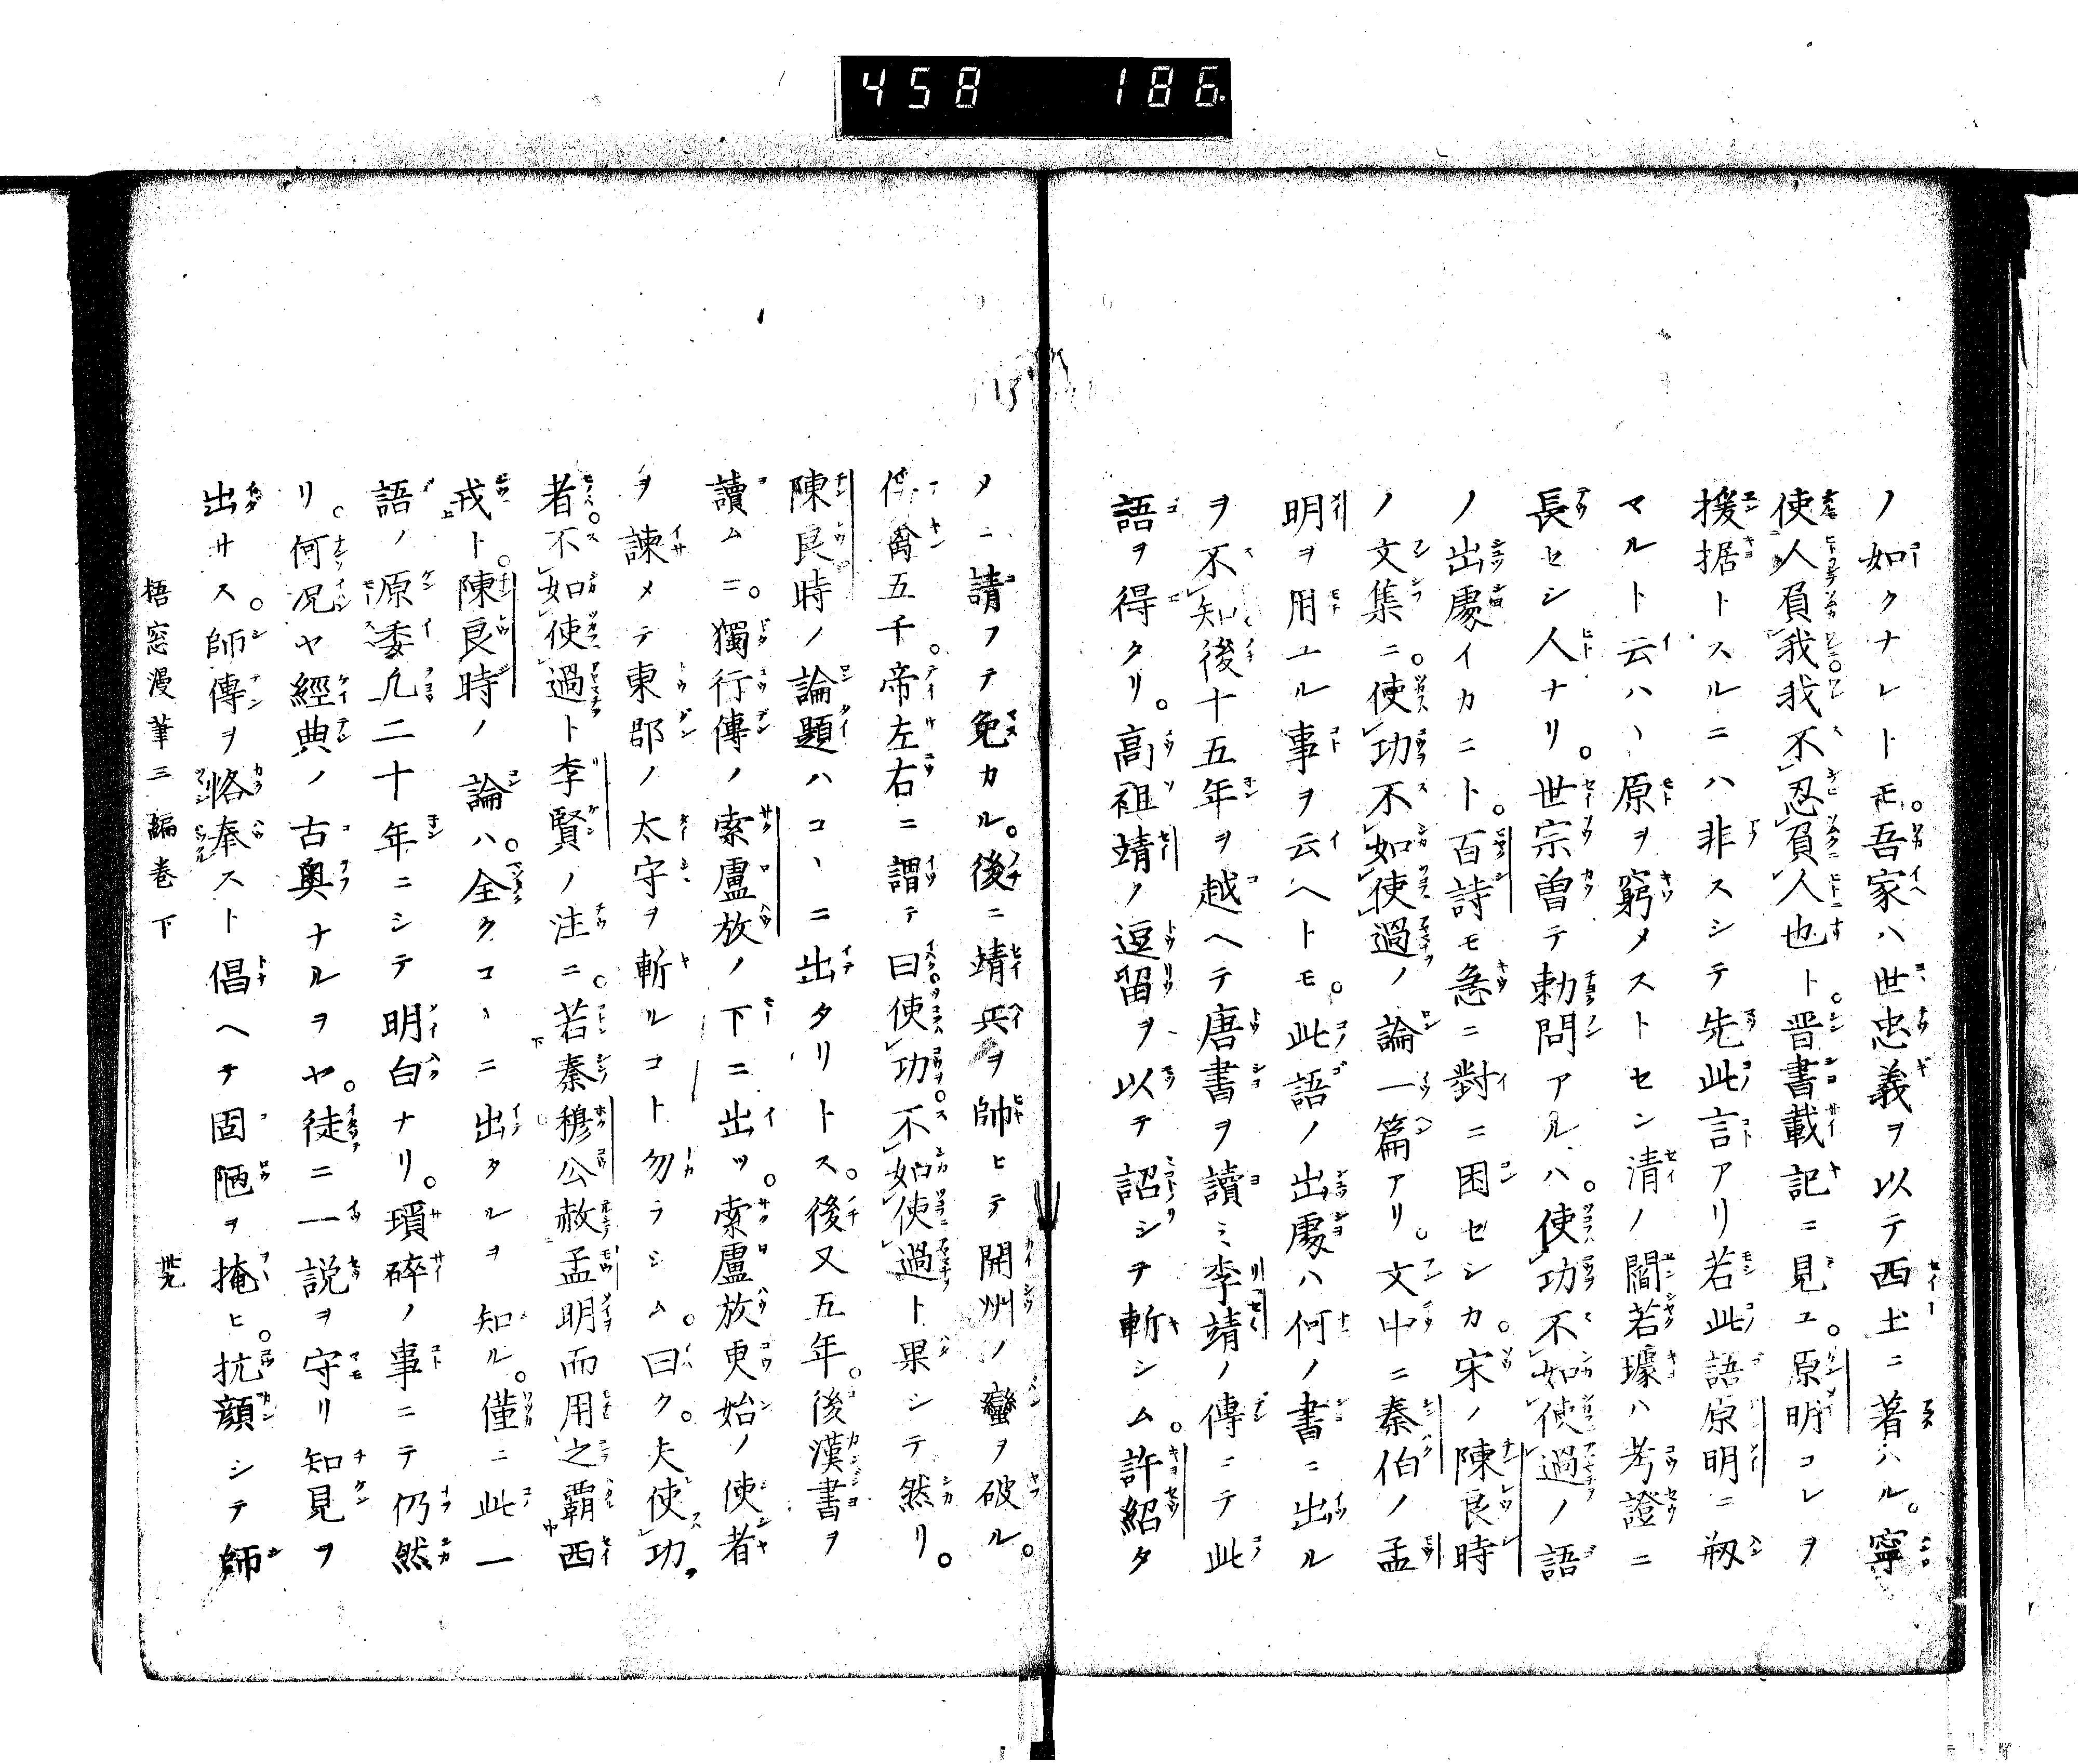 458 186
ノ如クナレトモ。吾家ハ世忠義ヲ以テ西土ニ著ハル。寧
使人負我我不忍負人也ト。晋書載記ニ見ユ。原明コレヲ
援据トスルニハ非スシテ先此言アリ若此語原明ニ剏
マルト云ハヽ原ヲ窮メストセン清ノ閻若璩ハ考證ニ
長セシ人ナリ。世宗曽テ勅問アルハ。使功不如使過ノ語
ノ出處イカニト。百詩モ急ニ對ニ困セシカ。宋ノ陳良時
ノ文集ニ。使功不如使過ノ論一篇アリ。文中ニ秦伯ノ孟
明ヲ用ユル事ヲ云ヘトモ。此語ノ出處ハ何ノ書ニ出ル
ヲ不知後十五年ヲ越ヘテ唐書ヲ讀ミ李靖ノ傳ニテ此
語ヲ得タリ。高祖靖ノ逗留ヲ以テ詔シテ斬シム。許紹タ
メニ請フテ免カル。後ニ靖兵ヲ帥ヒテ開州ノ蠻ヲ破ル。
俘禽五千。帝左右ニ謂テ曰使功不如使過ト果シテ然リ。
陳良時ノ論題ハコヽニ出タリトス。後又五年。後漢書ヲ
讀ムニ。獨行傳ノ索盧放ノ下ニ出ツ。索盧放更始ノ使者
ヲ諫メテ東郡ノ太守ヲ斬ルコト勿ラシム。曰ク。夫使功
者。不如使過ト李賢ノ注ニ。若秦穆公赦孟明而用之覇西
戎ト。陳良時ノ論ハ。全クコヽニ出タルヲ知ル。僅ニ此一
語ノ原委凢二十年ニシテ明白ナリ。瑣碎ノ事ニテ仍然
リ。何况ヤ經典ノ古奧ナルヲヤ。徒ニ一説ヲ守リ知見ヲ
出サス。師傳ヲ恪奉スト倡ヘテ固陋ヲ掩ヒ。抗顔シテ師
梧窓漫筆三編巻下 丗九